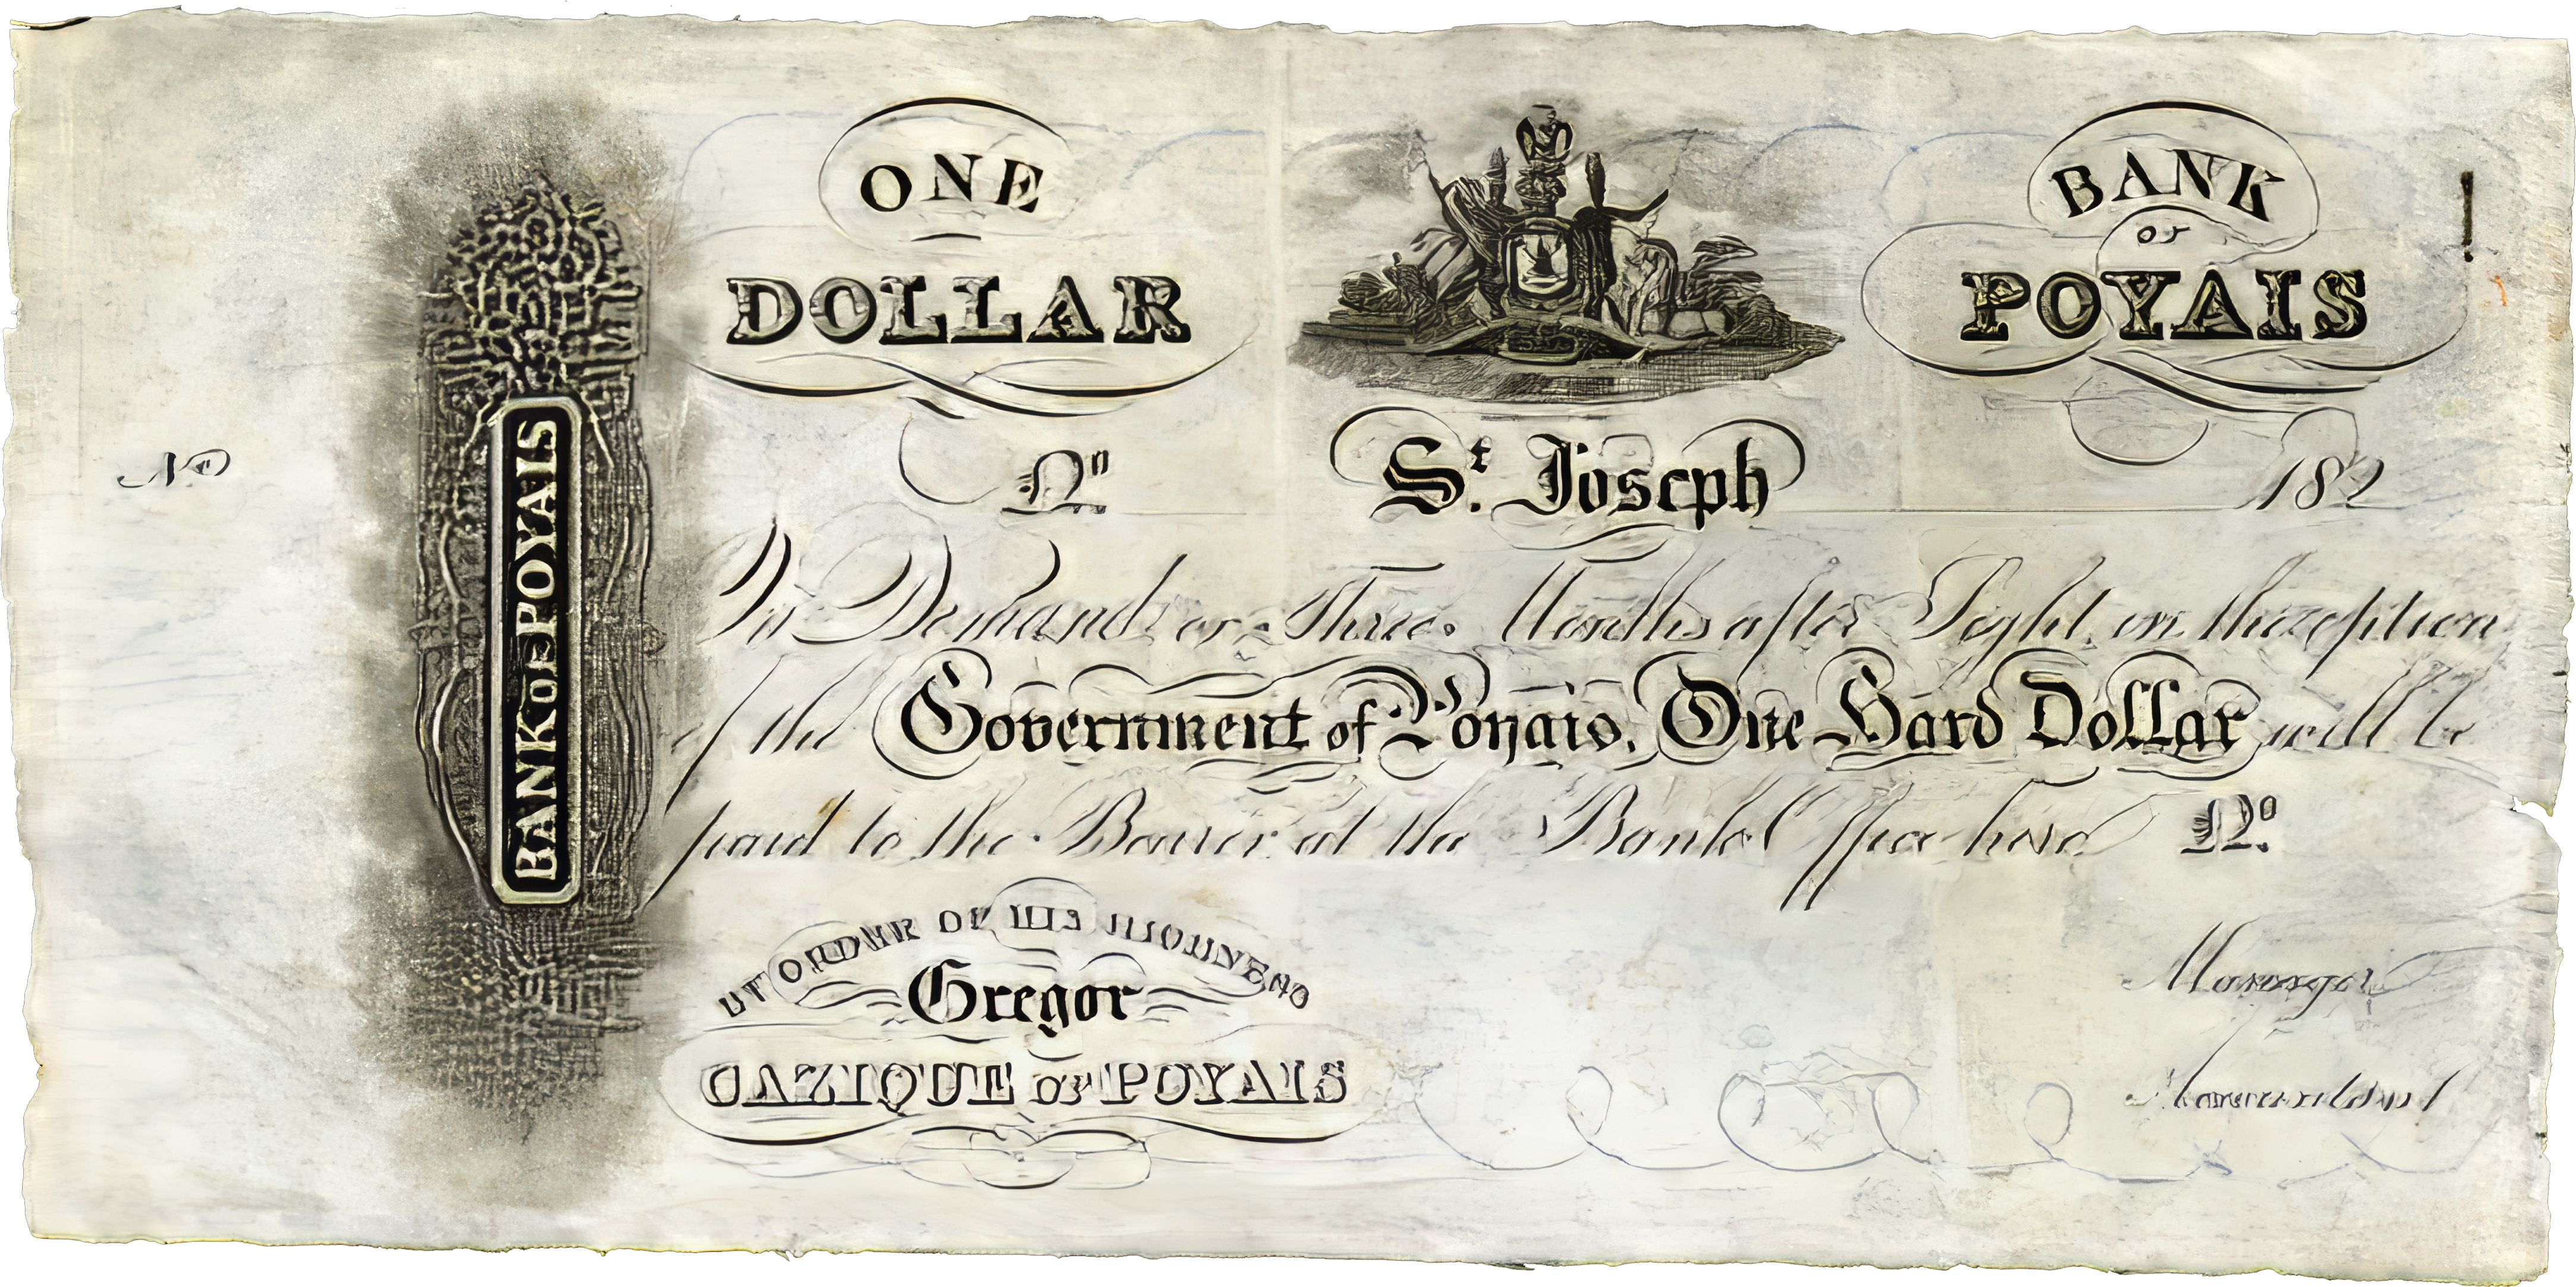 ONE
DOLLAR
BANK
OF
POYAIS
No
St. Joseph
182
BANK OF POYAIS
On Demand or Three Months after Sight in the option
of the Government of Poyais. One Hard Dollar will be
paid to the Bearer at the Bank Office here No.
Gregor
CAZIQUE OF POYAIS
Manager